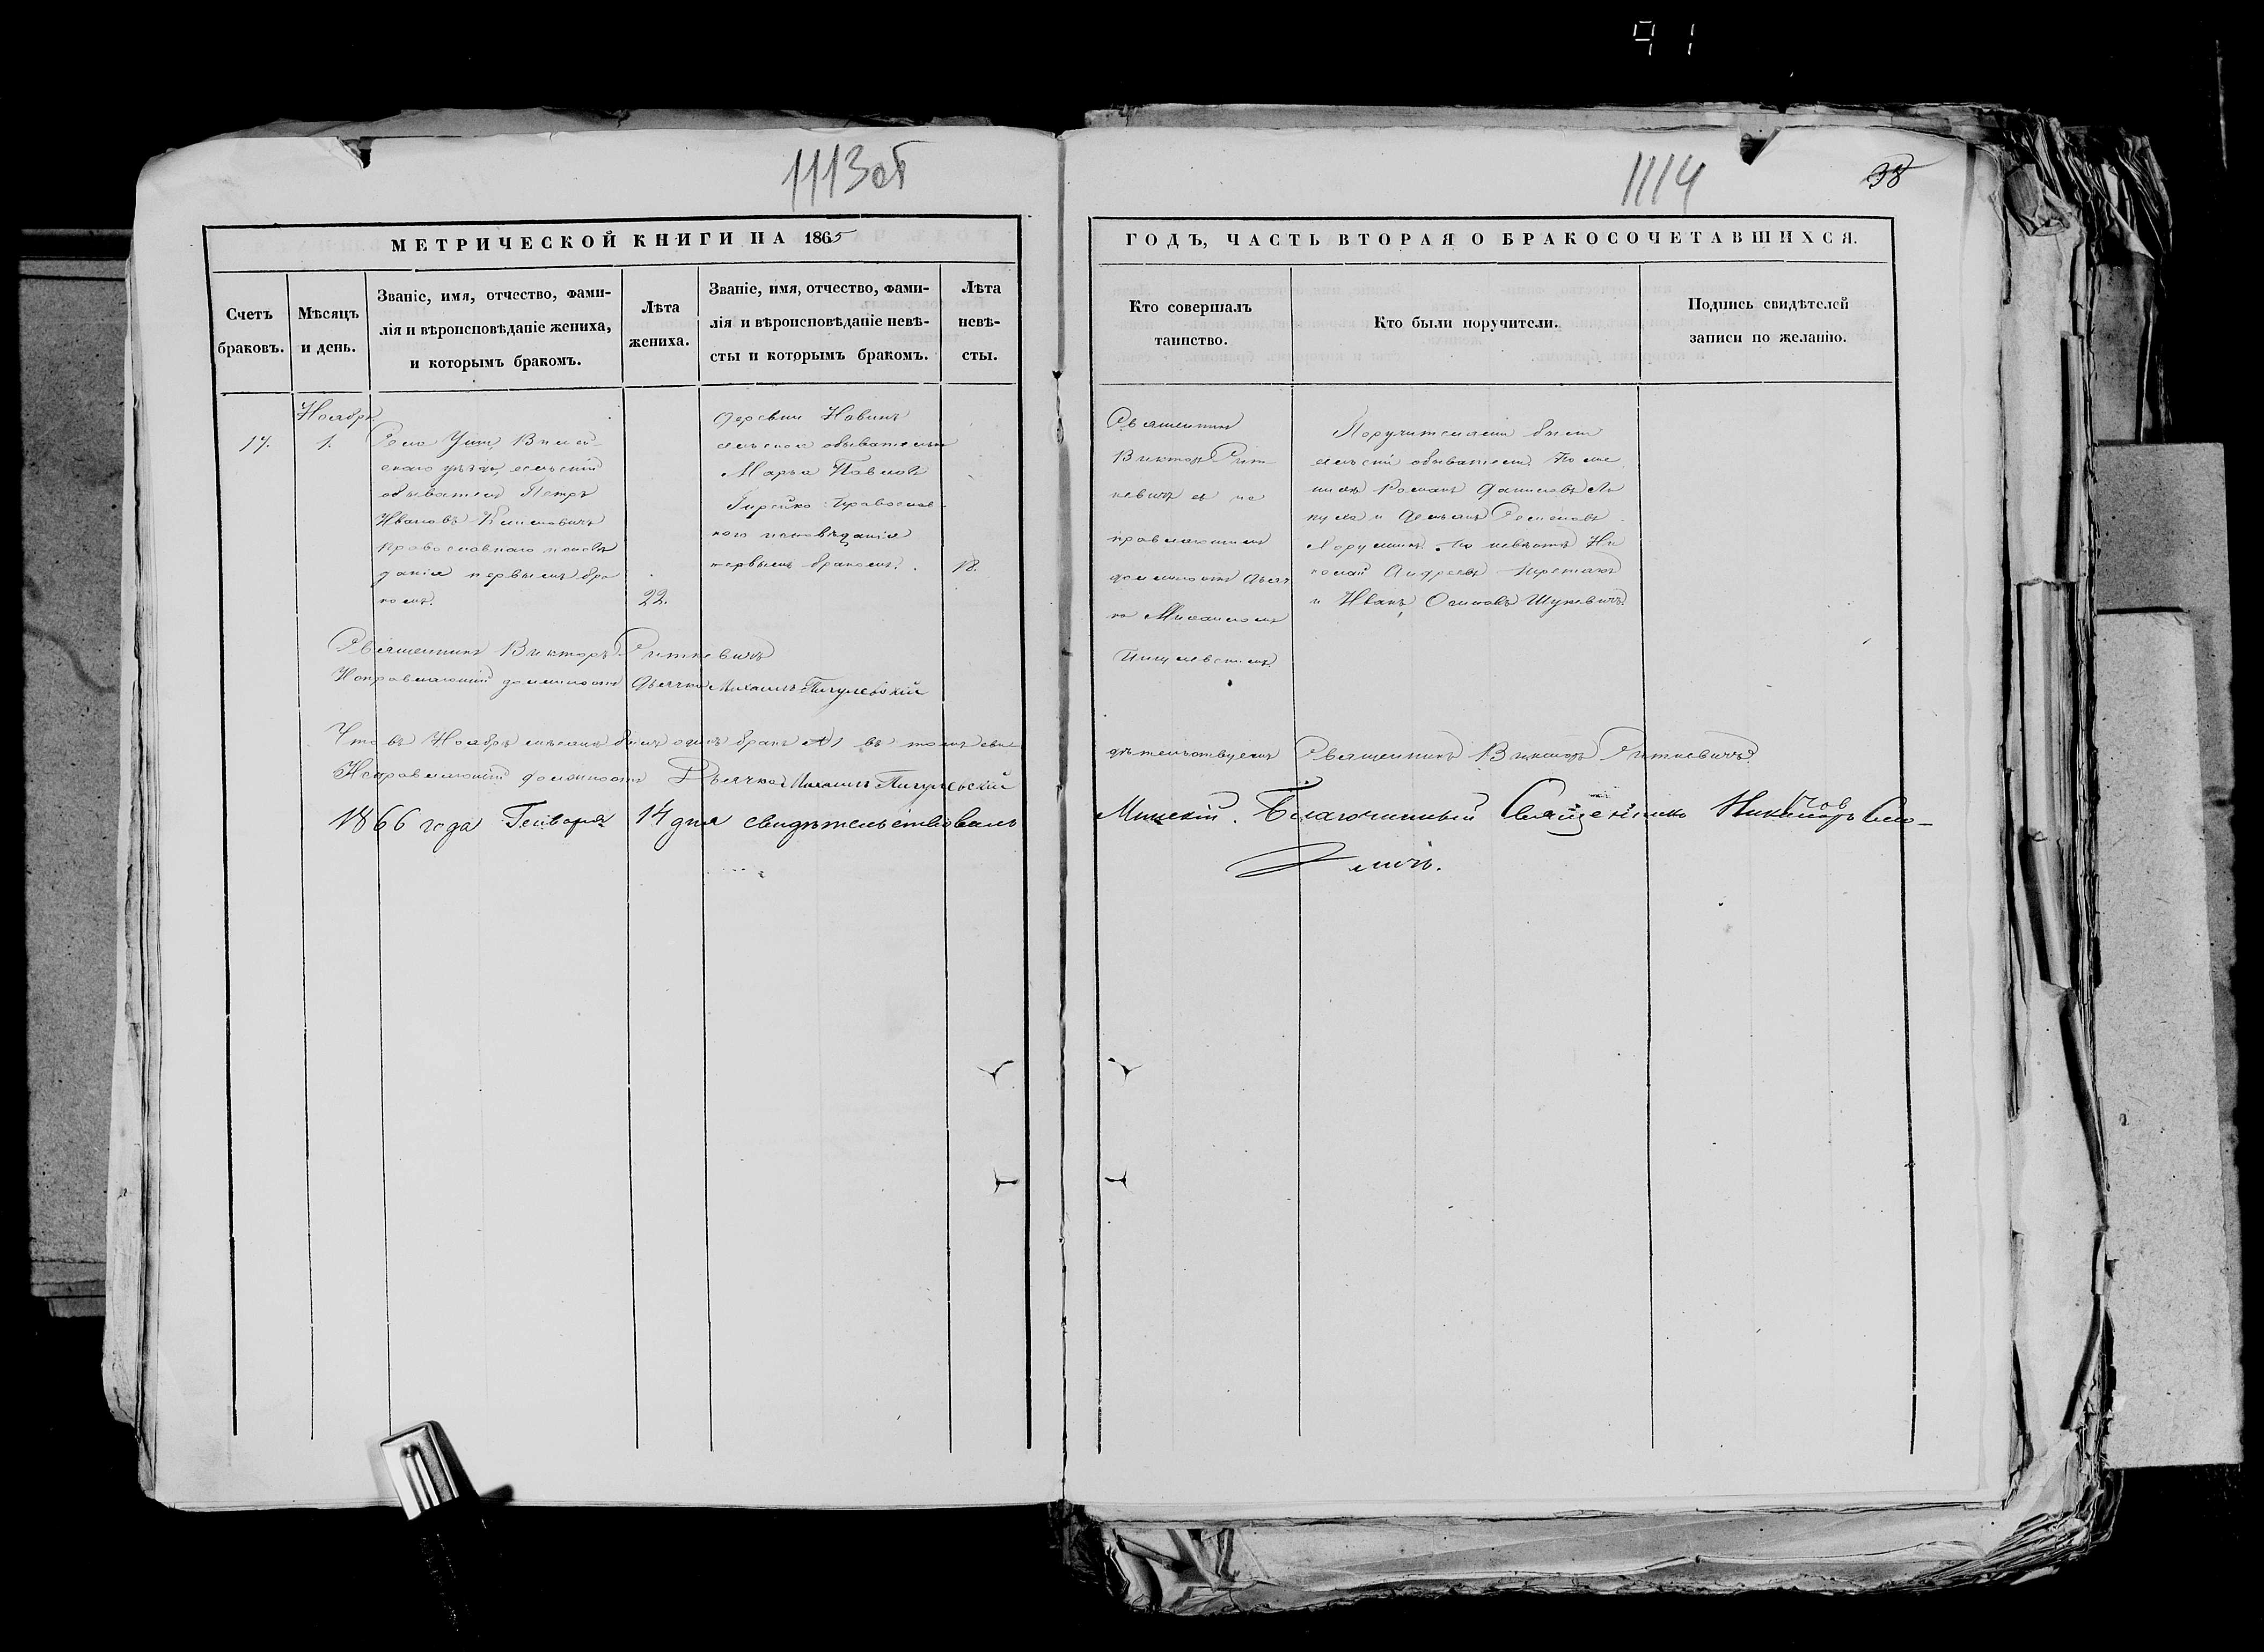 91
1113об
1114
38
МЕТРИЧЕСКОЙ КНИГИ НА 1865
ГОДЪ, ЧАСТЬ ВТОРАЯ О БРАКОСОЧЕТАВШИХСЯ.
Счетъ
браковъ.
Мѣсяцъ
и день.
Званіе, имя, отчество, фами-
лія и вѣроисповѣданіе жениха,
и которымъ бракомъ.
Лѣта
жениха.
Званіе, имя, отчество, фами-
лія и вѣроисповѣданіе невѣ-
сты и которымъ бракомъ.
Лѣта
невѣ-
сты.
Кто совершалъ
таинство.
Кто были поручители.
Подпись свидѣтелей
записи по желанію.
Ноябрь
17.
1.
Села Вилей-
скаго уѣзда, сельскій
обыватель Петръ
Ивановъ Климовичъ
православнаго исповѣ
данія первымъ бра
комъ.
22.
деревни Новинъ
сельская обывательн
Марья Павлова
Гирейко Православ-
наго исповѣданія
первымъ бракомъ.
18.
Священникъ
Викторъ Сит
кевичъ съ ис
правляющимъ
должность дьяч
ка Михаиломъ
Пигулевскимъ.
Поручителями были
сельскіе обыватели: По же
нихѣ Романъ Даниловъ
и Демьянъ Семеновъ
По невѣстѣ Ни
колай Андреевъ
и Иванъ Осиповъ Шукевичъ.
Священникъ Викторъ Ситкевичъ
Исправляющій должность Дьячка Михаилъ Пигулевскій
Что въ Ноябрѣ мѣсяцѣ былъ одинъ бракъ №1 въ томъ сви
дѣтельствуемъ Священникъ Викторъ Ситкевичъ.
Исправляющій должность Дьячка Михаилъ Пигулевскій
1866 года Генваря 14 дня свидѣтельствовалъ
Минскій Благочинный Священникъ Никаноръ Смо-
личъ.